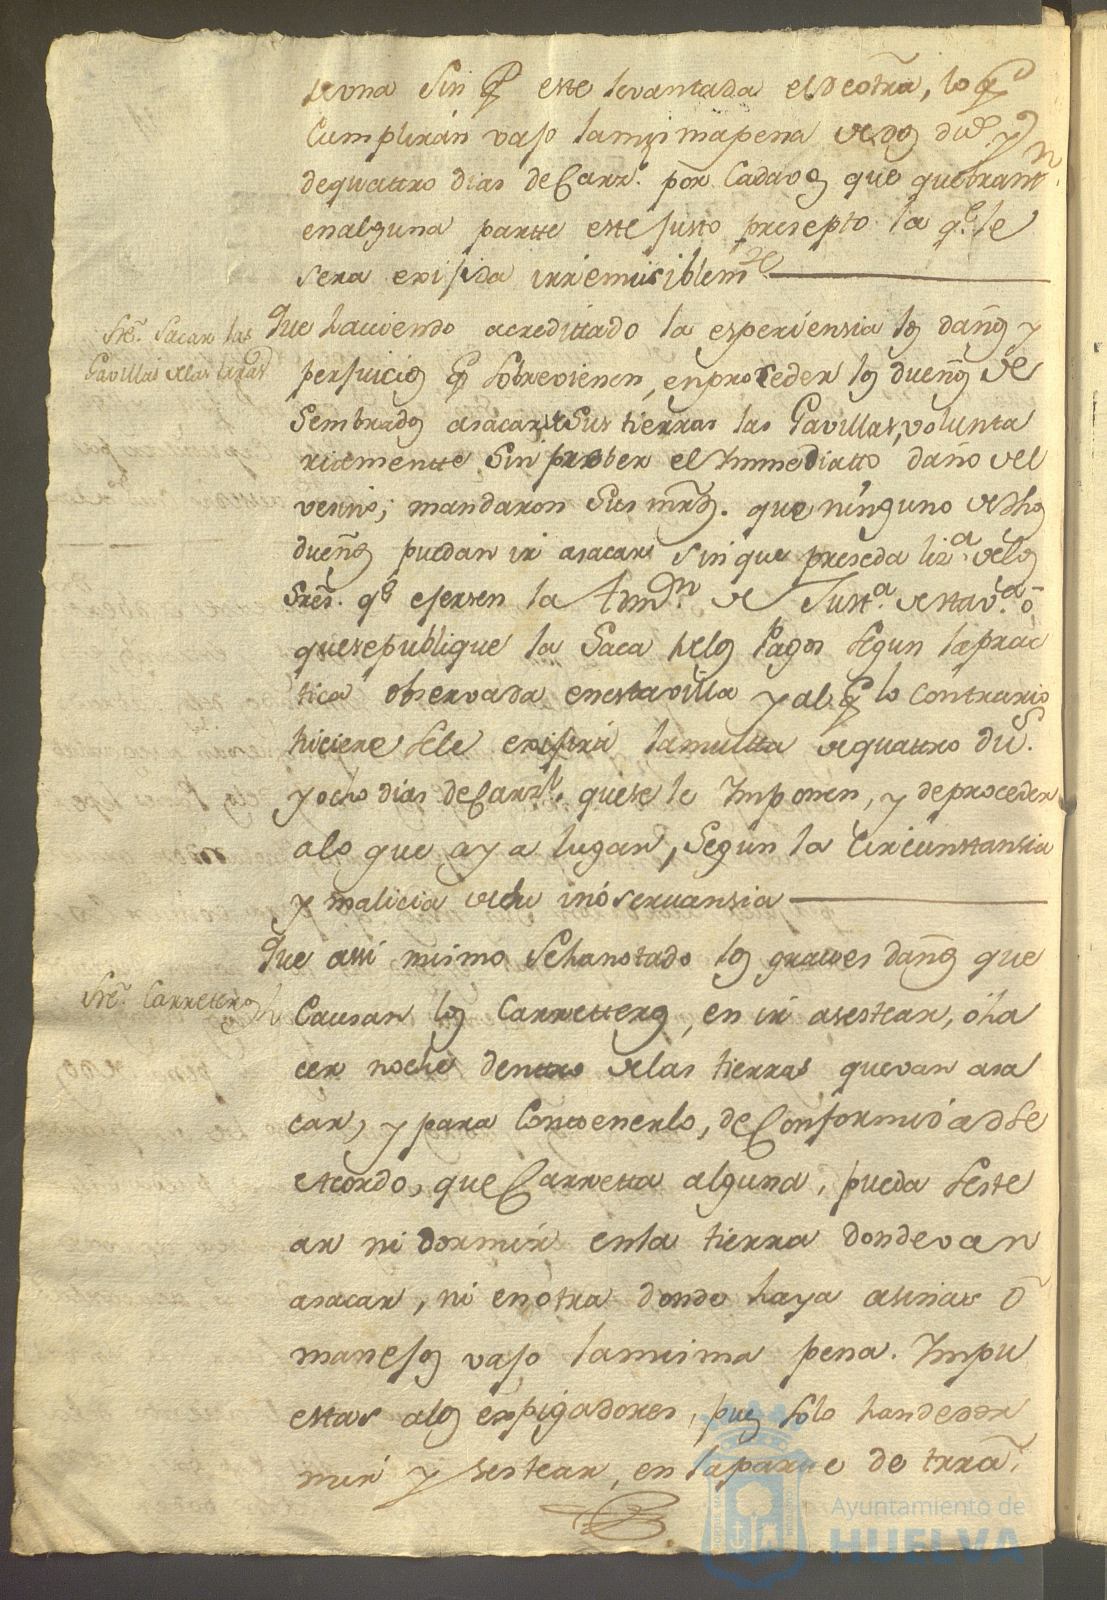 de una sin q.e este levantada el de otra, lo q.e
Cumplirán vajo la misma pena de dos du.s y
de quattro dias de Carz.l por Cada vez que quebrant.n
en alguna partte este justo presepto la q.e le
sera exijida irremisiblem.te
Sre. Sacar las
Gavillas de las tierras
Que haviendo acredittado la esperiensia los daños y
perjuicios q.e sobrevienen, en proceder los dueños de
Sembrados a sacar de Sus tierras las Gavillas, volunta
riamentte sin prober el Immediatto daño del
vesino; mandaron Sus mrds. que ninguno de dhos
dueños puedan ir a sacar sin que preseda liz.a de los
Sres. q.e ejersen la Adm.n de Justt.a de esta v.a ó
que se publique la Saca de los Pagos segun la prac
tica observada en esta villa y al q.e lo contrario
hiciere se le exijirá la multta de quattro du.s
y ocho dias de Carz.l que se le Imponen, y de proceder
a lo que aya lugar, Segun la Circunstansia
y malicia de su inóservansia
Sre. Carretteros
Que assi mismo se ha notado los graves daños que
Causan los Carretteros, en ir a sestear, ó ha
cer noche dentro de las tierras que van a sa
car, y para Contenerlo, de Conformidad se
Acordo, que Carretta alguna, pueda seste
ar ni dormir en la tierra donde van
a sacar, ni en otra donde haya asinas ó
manejos vajo la misma pena. Impu
estas a los espigadores, pues solo han de dor
mir y sestear, en la parte de trra.
Ayuntamiento de
HUELVA